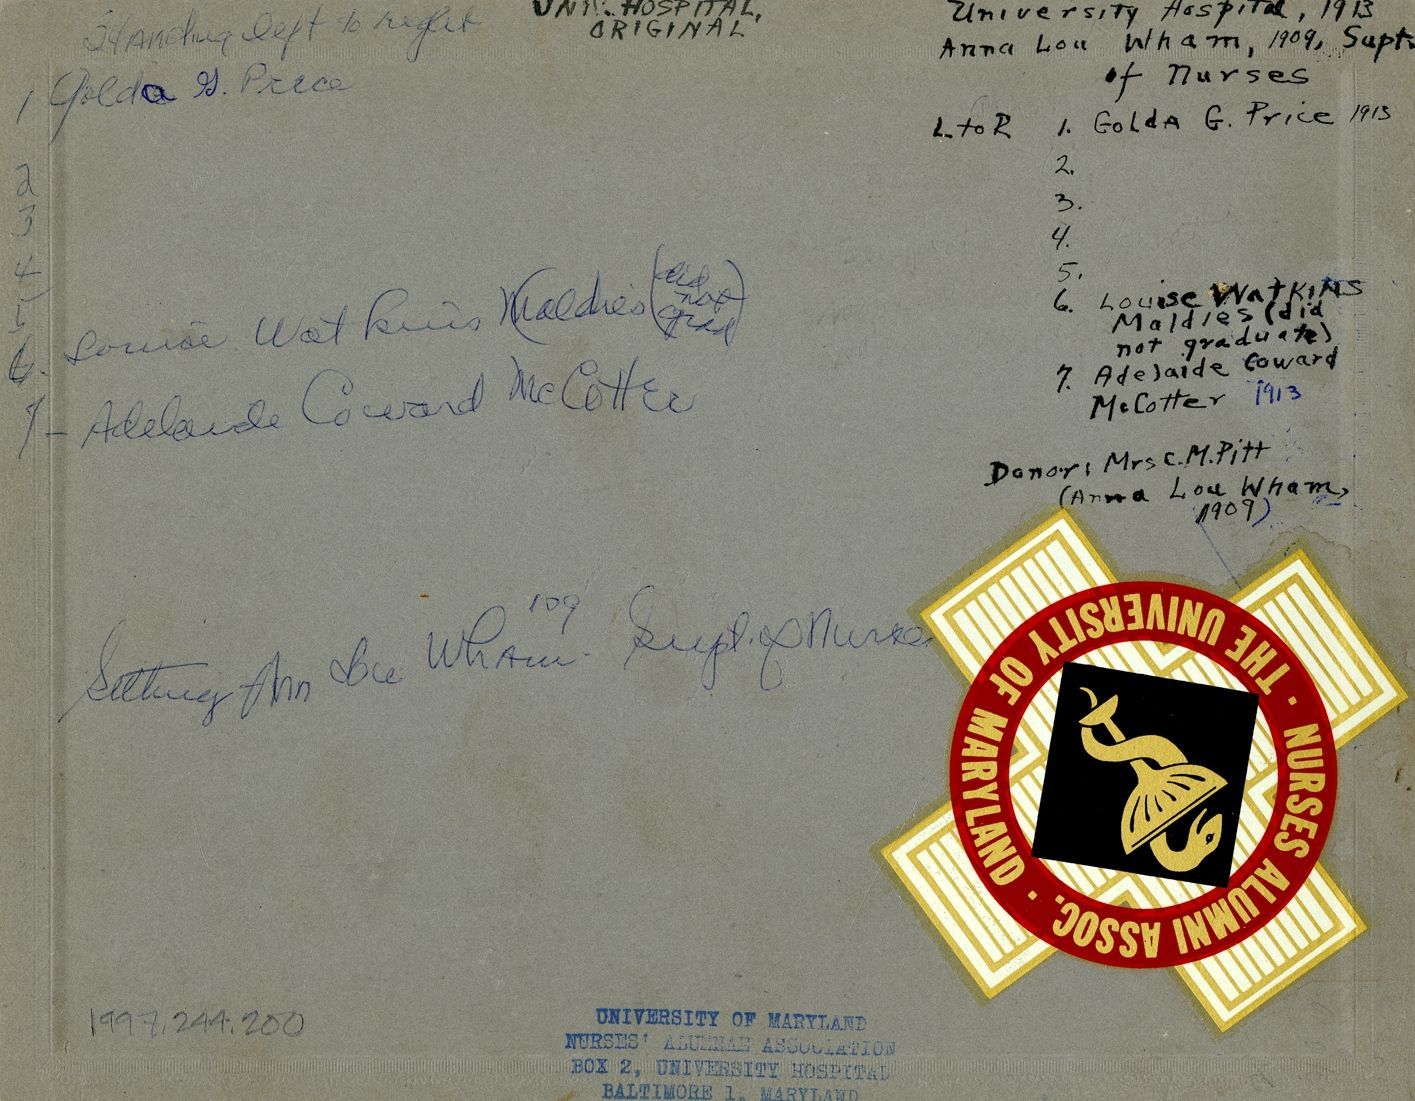 Standing left to right
1 Golda G. Price
2
3
4
5
6- Louise Watkins Maldies (did
not
grad)
7- Adelaide Coward McCotter
Sitting Ann Lou Wham '09 - Supt. of Nurses
1997.244.200
UNIV. HOSPITAL,
ORIGINAL
University Hospital, 1913
Anna Lou Wham, 1909, Supt.
of Nurses
L to R 1. Golda G. Price 1913
2.
3.
4.
5.
6. Louise Watkins
Maldies (did
not graduate)
7. Adelaide Coward
McCotter 1913
Donor: Mrs C.M. Pitt
(Anna Lou Wham,
1909)
THE UNIVERSITY OF MARYLAND · NURSES ALUMNI ASSOC. ·
UNIVERSITY OF MARYLAND
NURSES' ALUMNAE ASSOCIATION
BOX 2, UNIVERSITY HOSPITAL
BALTIMORE 1, MARYLAND